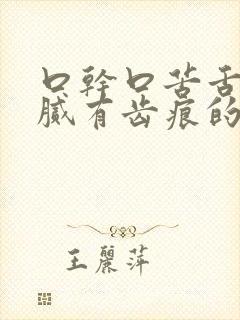 口幹口苦舌
膩有齿痕的
王麗萍